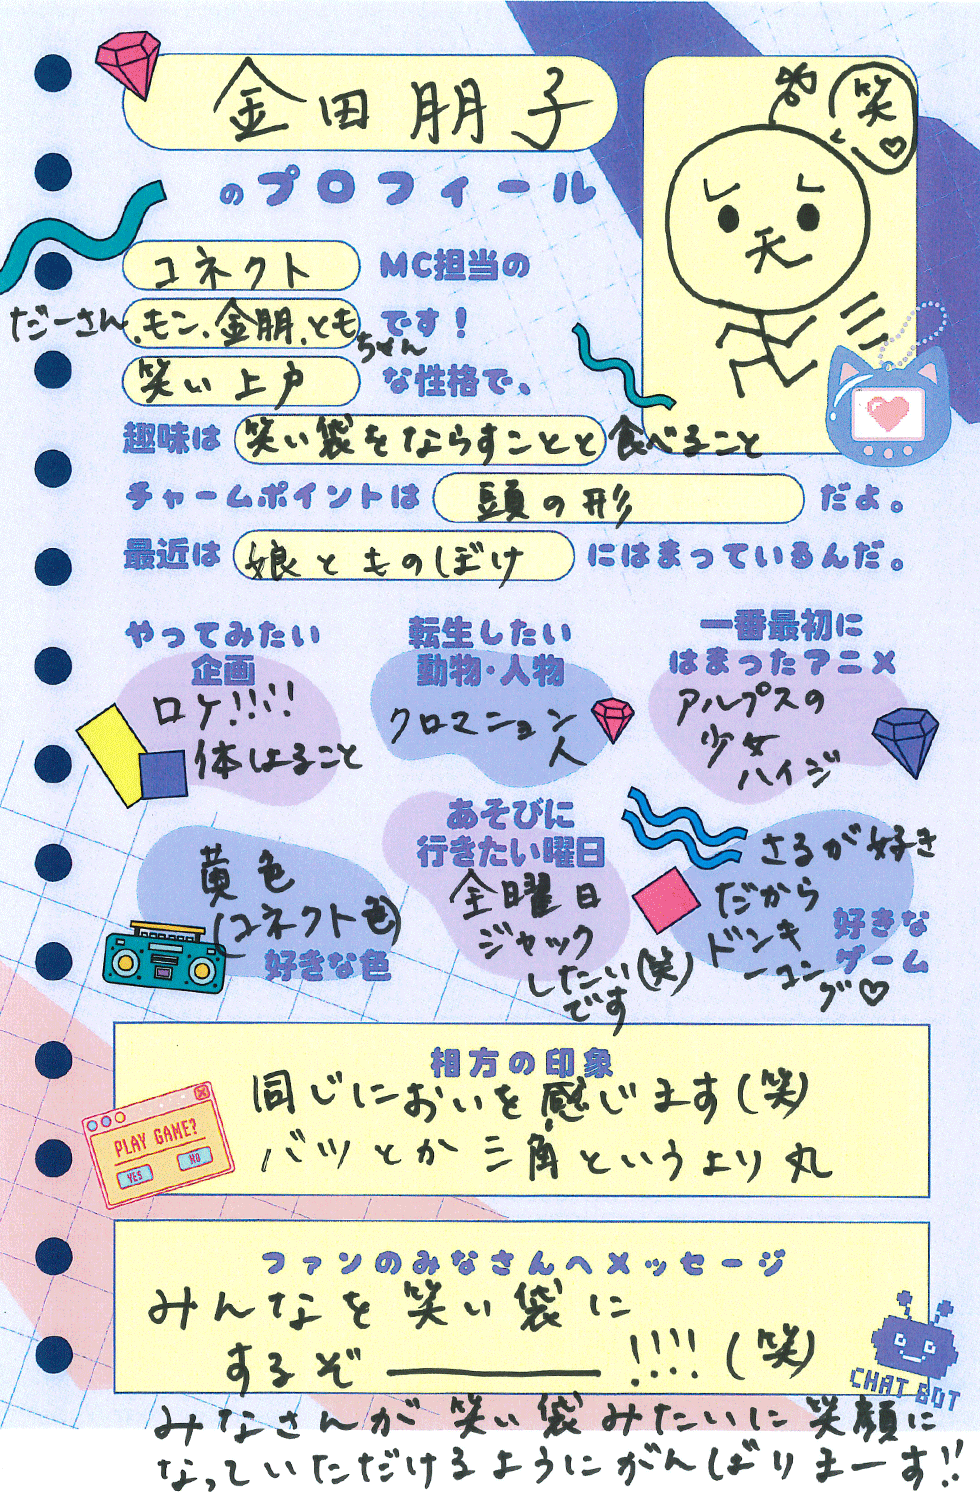 金田朋子
笑♡
のプロフィール
コネクト MC担当の
だーさん、モン、金朋、ともちゃん です！
笑い上戸 な性格で、
趣味は 笑い袋をならすことと食べること
チャームポイントは 頭の形 だよ。
最近は 娘とものぼけ にはまっているんだ。
やってみたい
企画
ロケ!!!!
体はること
転生したい
動物・人物
クロマニョン
人
一番最初に
はまったアニメ
アルプスの
少女
ハイジ
黄色
(コネクト色)
好きな色
あそびに
行きたい曜日
金曜日
ジャック
したい(笑)
です
さるが好き
だから
ドンキ
ーコング♡
好きな
ゲーム
相方の印象
同じにおいを感じます(笑)
バツとか三角というより丸
PLAY GAME?
YES NO
ファンのみなさんへメッセージ
みんなを笑い袋に
するぞ――――!!!!(笑)
みなさんが笑い袋みたいに笑顔に
なっていただけるようにがんばりまーす!!
CHAT BOT